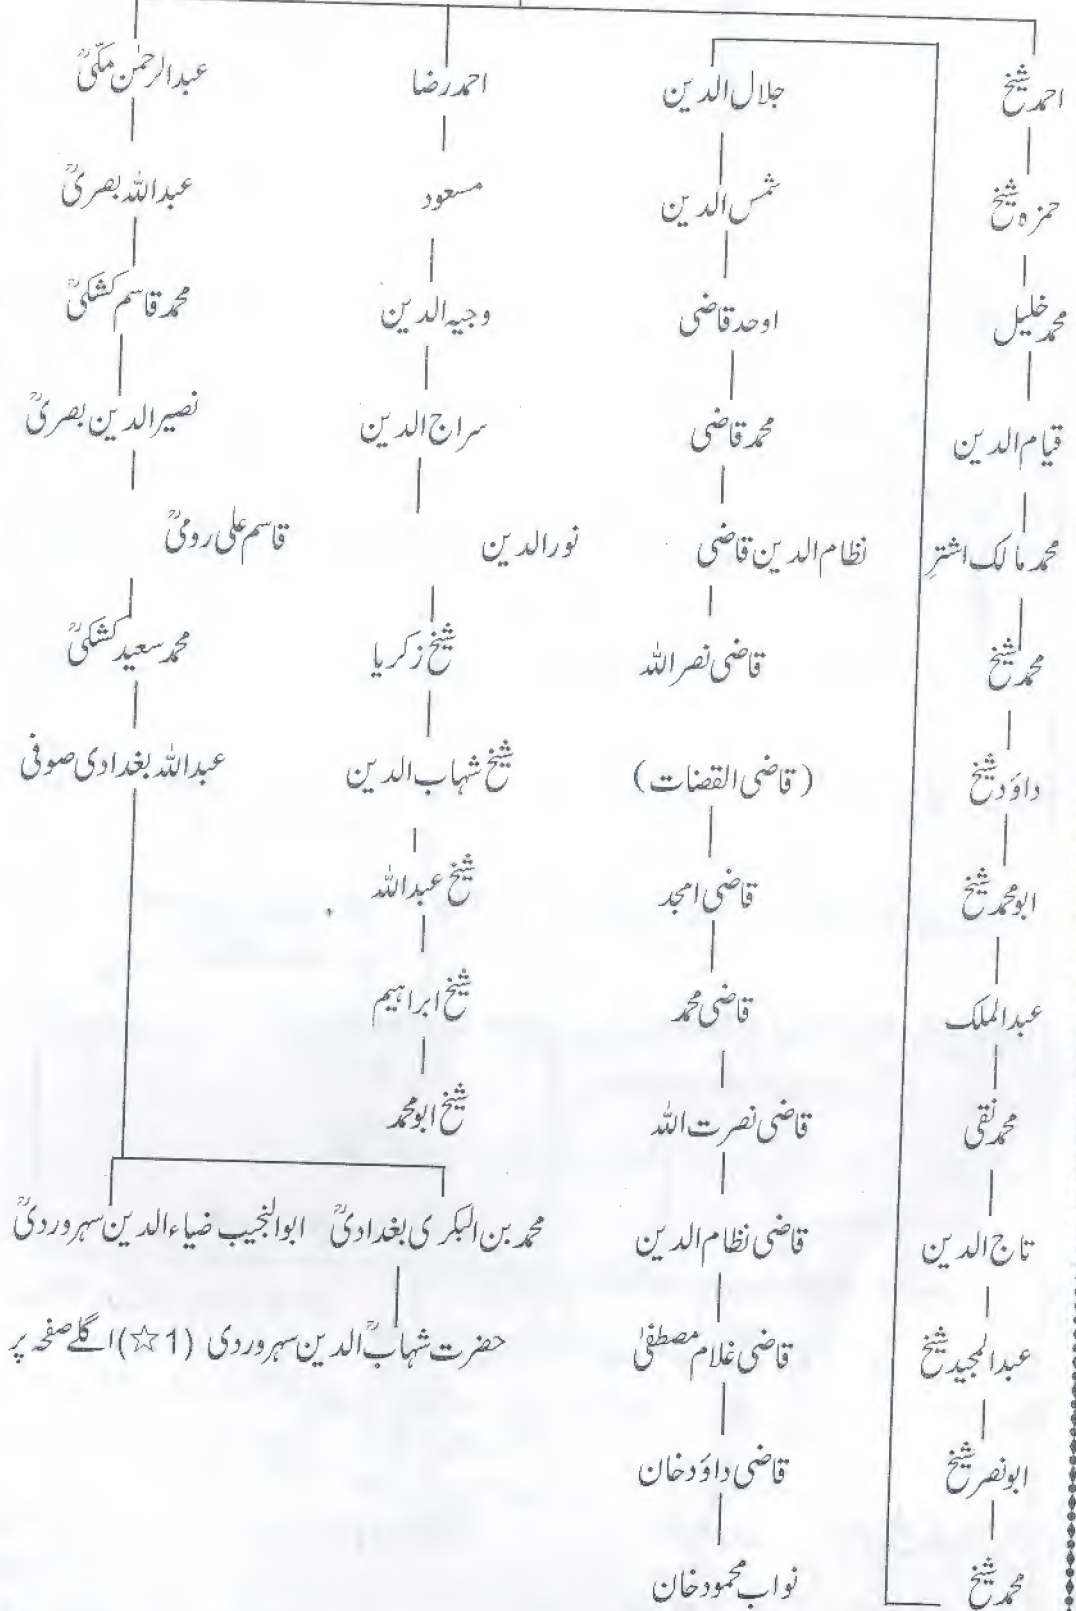 احمد شیخ
حمزہ شیخ
محمد خلیل
قیام الدین
محمد مالک اشتر
محمد شیخ
داؤد شیخ
ابو محمد شیخ
عبدالملک
محمد نقی
تاج الدین
عبدالمجید شیخ
ابو نصر شیخ
محمد شیخ
جلال الدین
شمس الدین
اوحد قاضی
محمد قاضی
نظام الدین قاضی
قاضی نصر اللہ
(قاضی القضات)
قاضی امجد
قاضی محمد
قاضی نصرت اللہ
قاضی نظام الدین
قاضی غلام مصطفیٰ
قاضی داؤد خان
نواب محمود خان
احمد رضا
مسعود
وجیہ الدین
سراج الدین
نور الدین
شیخ زکریا
شیخ شہاب الدین
شیخ عبداللہ
شیخ ابراہیم
شیخ ابو محمد
عبدالرحمٰن مکّیؒ
عبداللہ بصریؒ
محمد قاسم کشکیؒ
نصیر الدین بصریؒ
قاسم علی رومیؒ
محمد سعید کشکیؒ
عبداللہ بغدادی صوفی
محمد بن البکری بغدادیؒ ابوالنجیب ضیاء الدین سہروردیؒ
حضرت شہابؒ الدین سہروردی (1☆) اگلے صفحہ پر